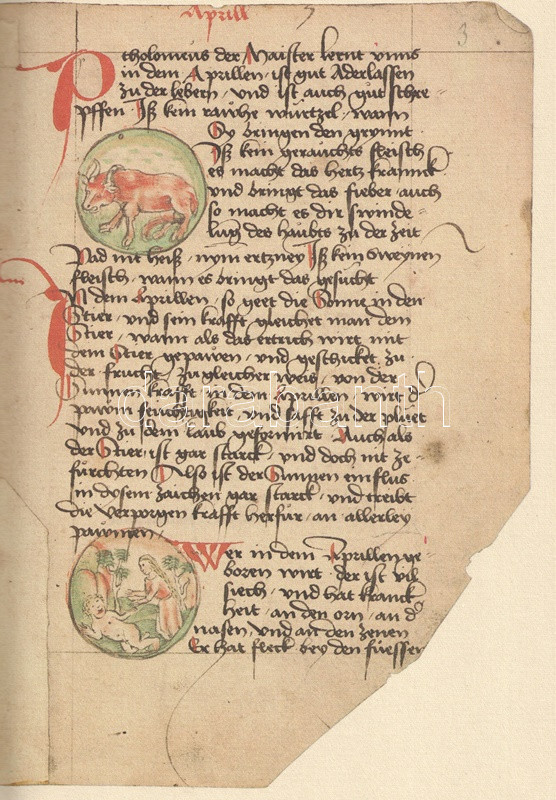 Aprill
3
Ptholomeus der Maister lernt vnns
in dem Aprillen ist gut Aderlassen
zu der lebern vnd ist auch gut schre
pffen Iß kein rawhe würtzel wann
Sy bringen den grynnt
Iß kein gerauchts fleisch
es macht das hertz kranck
vnd bringt das fieber auch
so macht es dir swinde-
lung des haubts zu der zeit
Pad nit heiß nym ertzney Iß kein Sweynen
fleisch wann es bringt das gesücht
In dem Aprillen so geet die Sonne in den
Stier vnd sein krafft gleichet man dem
Stier wann als das ertrich wirt mit
dem Stier gepawen vnd geschicket zu
der frucht zu gleicher weis von der
Sunnen krafft in dem Aprillen wirt d
pawm feuchtigkeit vnd safft zu der pluet
vnd zu dem laub geformirt Auch als
der Stier ist gar starck vnd doch nit ze
fürchten Also ist der Sunnen einflus
in disem zaichen gar starck vnd treibt
die verporgen krafft herfür an allerley
pawmen
Wer in dem Aprillen ge
boren wirt der ist vil
siech vnd hat kranck
heit an den orn an d
nasen vnd an den zenen
Er hat fleck bey den füessen